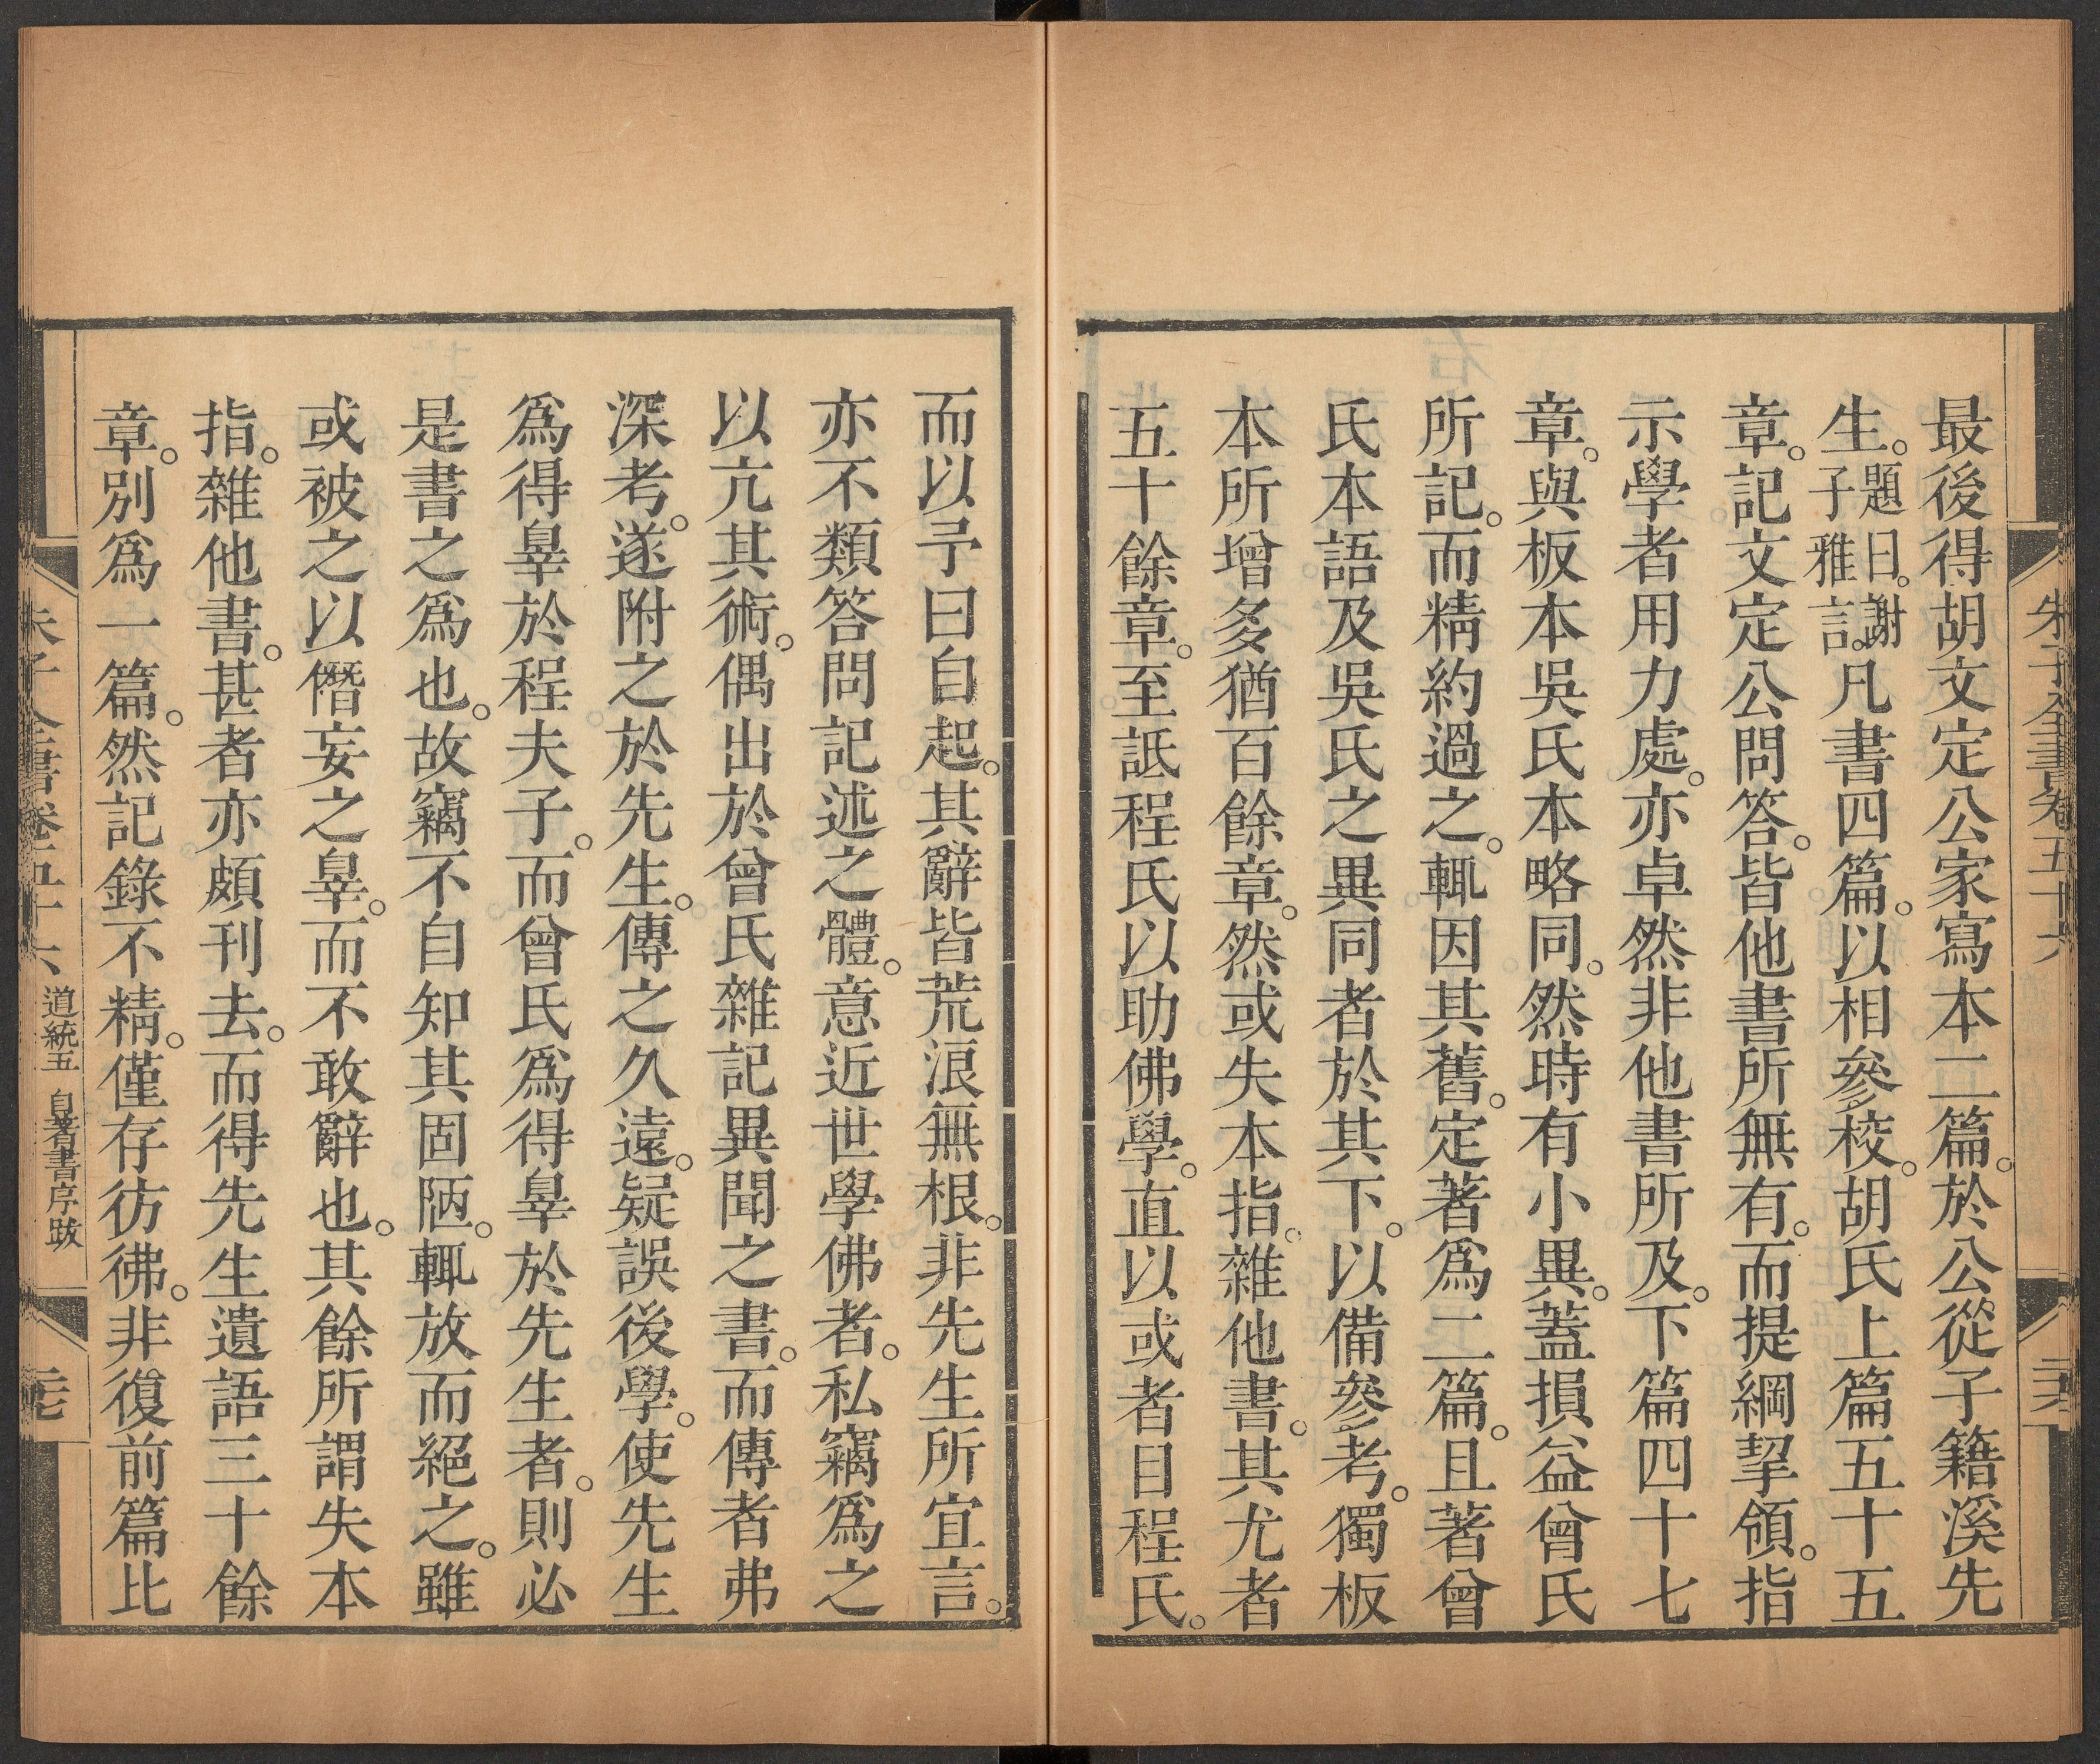 朱子全書卷五十六
最後得胡文定公家寫本二篇。於公從子籍溪先
生。題曰。謝子雅言。凡書四篇。以相參校。胡氏上篇五十五
章。記文定公問答。皆他書所無有。而提綱挈領。指
示學者用力處。亦卓然非他書所及。下篇四十七
章。與板本吳氏本略同。然時有小異。蓋損益曾氏
所記。而精約過之。輒因其舊。定著爲二篇。且著曾
氏本語及吳氏之異同者於其下。以備參考。獨板
本所增多猶百餘章。然或失本指。雜他書。其尤者
五十餘章。至詆程氏以助佛學。直以或者目程氏。
而以予曰自起。其辭皆荒浪無根。非先生所宜言。
亦不類答問記述之體。意近世學佛者。私竊爲之
以亢其術。偶出於曾氏雜記異聞之書。而傳者弗
深考。遂附之於先生。傳之久遠。疑誤後學。使先生
爲得辠於程夫子。而曾氏爲得辠於先生者。則必
是書之爲也。故竊不自知其固陋。輒放而絕之。雖
或被之以僭妄之辠。而不敢辭也。其餘所謂失本
指。雜他書。甚者亦頗刊去。而得先生遺語三十餘
章。別爲一篇。然記錄不精。僅存彷彿。非復前篇比
朱子全書卷五十六 道統五 自著書序跋